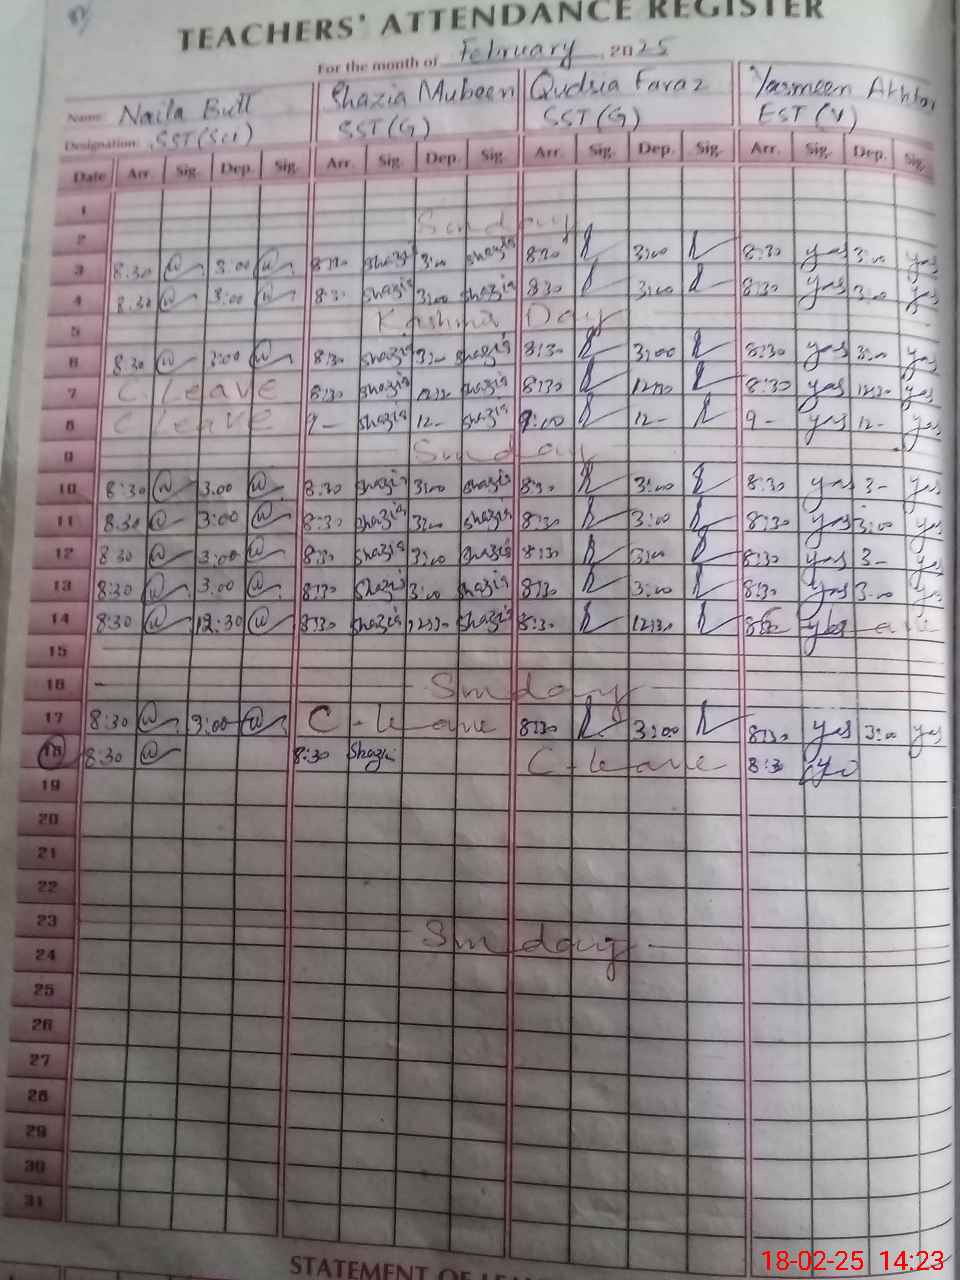 TEACHERS' ATTENDANCE REGISTER
For the month of February, 2025
Name: Naila Butt Shazia Mubeen Qudsia Faraz Yasmeen Akhtar
Designation: SST(Sci) SST(G) SST(G) EST(V)
Date Arr. Sig. Dep. Sig. Arr. Sig. Dep. Sig. Arr. Sig. Dep. Sig. Arr. Sig. Dep. Sig.
1
2 Sunday
3 8:30 3:00 8:30 Shazia 3:00 Shazia 8:30 3:00 8:30 yas 3:00 yas
4 8:30 3:00 8:30 Shazia 3:00 Shazia 8:30 3:00 8:30 yas 3:00 yas
5 Kashmir Day
6 8:30 3:00 8:30 Shazia 3:00 Shazia 8:30 3:00 8:30 yas 3:00 yas
7 C. Leave 8:30 Shazia 12:30 Shazia 8:30 12:30 8:30 yas 12:30 yas
8 C Leave 9- Shazia 12- Shazia 9:00 12- 9- yas 12- yas
9 Sunday
10 8:30 3.00 8:30 Shazia 3:00 Shazia 8:30 3:00 8:30 yas 3- yas
11 8:30 3:00 8:30 Shazia 3:00 Shazia 8:30 3:00 8:30 yas 3:00 yas
12 8:30 3:00 8:30 Shazia 3:00 Shazia 8:30 3:00 8:30 yas 3- yas
13 8:30 3.00 8:30 Shazia 3:00 Shazia 8:30 3:00 8:30 yas 3:00 yas
14 8:30 12:30 8:30 Shazia 12:30 Shazia 8:30 12:30
15
16 Sunday
17 8:30 3:00 C-leave 8:30 3:00 8:30 yas 3:00 yas
18 8:30 8:30 Shazia C-leave 8:30
19
20
21
22
23 Sunday
24
25
26
27
28
29
30
31
STATEMENT OF
18-02-25 14:23